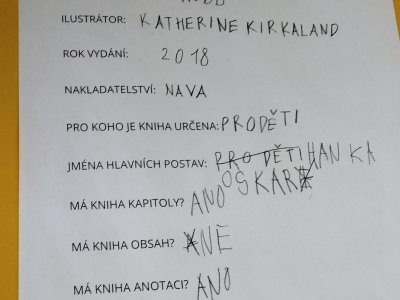 ILUSTRÁTOR: KATHERINE KIRKALAND
ROK VYDÁNÍ: 2018
NAKLADATELSTVÍ: NAVA
PRO KOHO JE KNIHA URČENA: PRODĚTI
JMÉNA HLAVNÍCH POSTAV: PRO DĚTI HANKA
OSKAR
MÁ KNIHA KAPITOLY? ANO
MÁ KNIHA OBSAH? NE
MÁ KNIHA ANOTACI? ANO